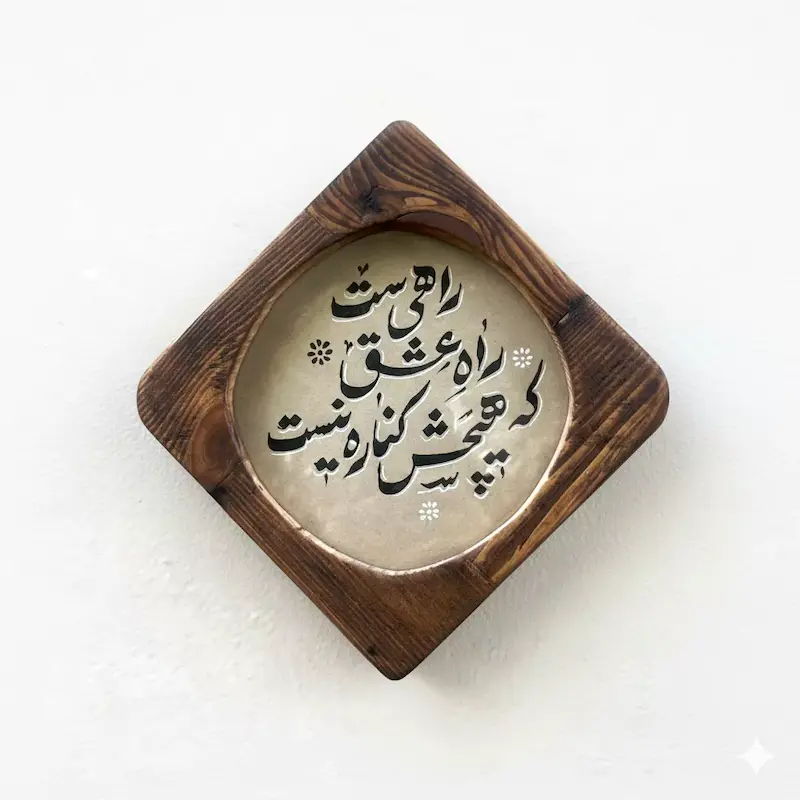 راهی‌ست
راهِ عشق
که هیچش
کناره نیست